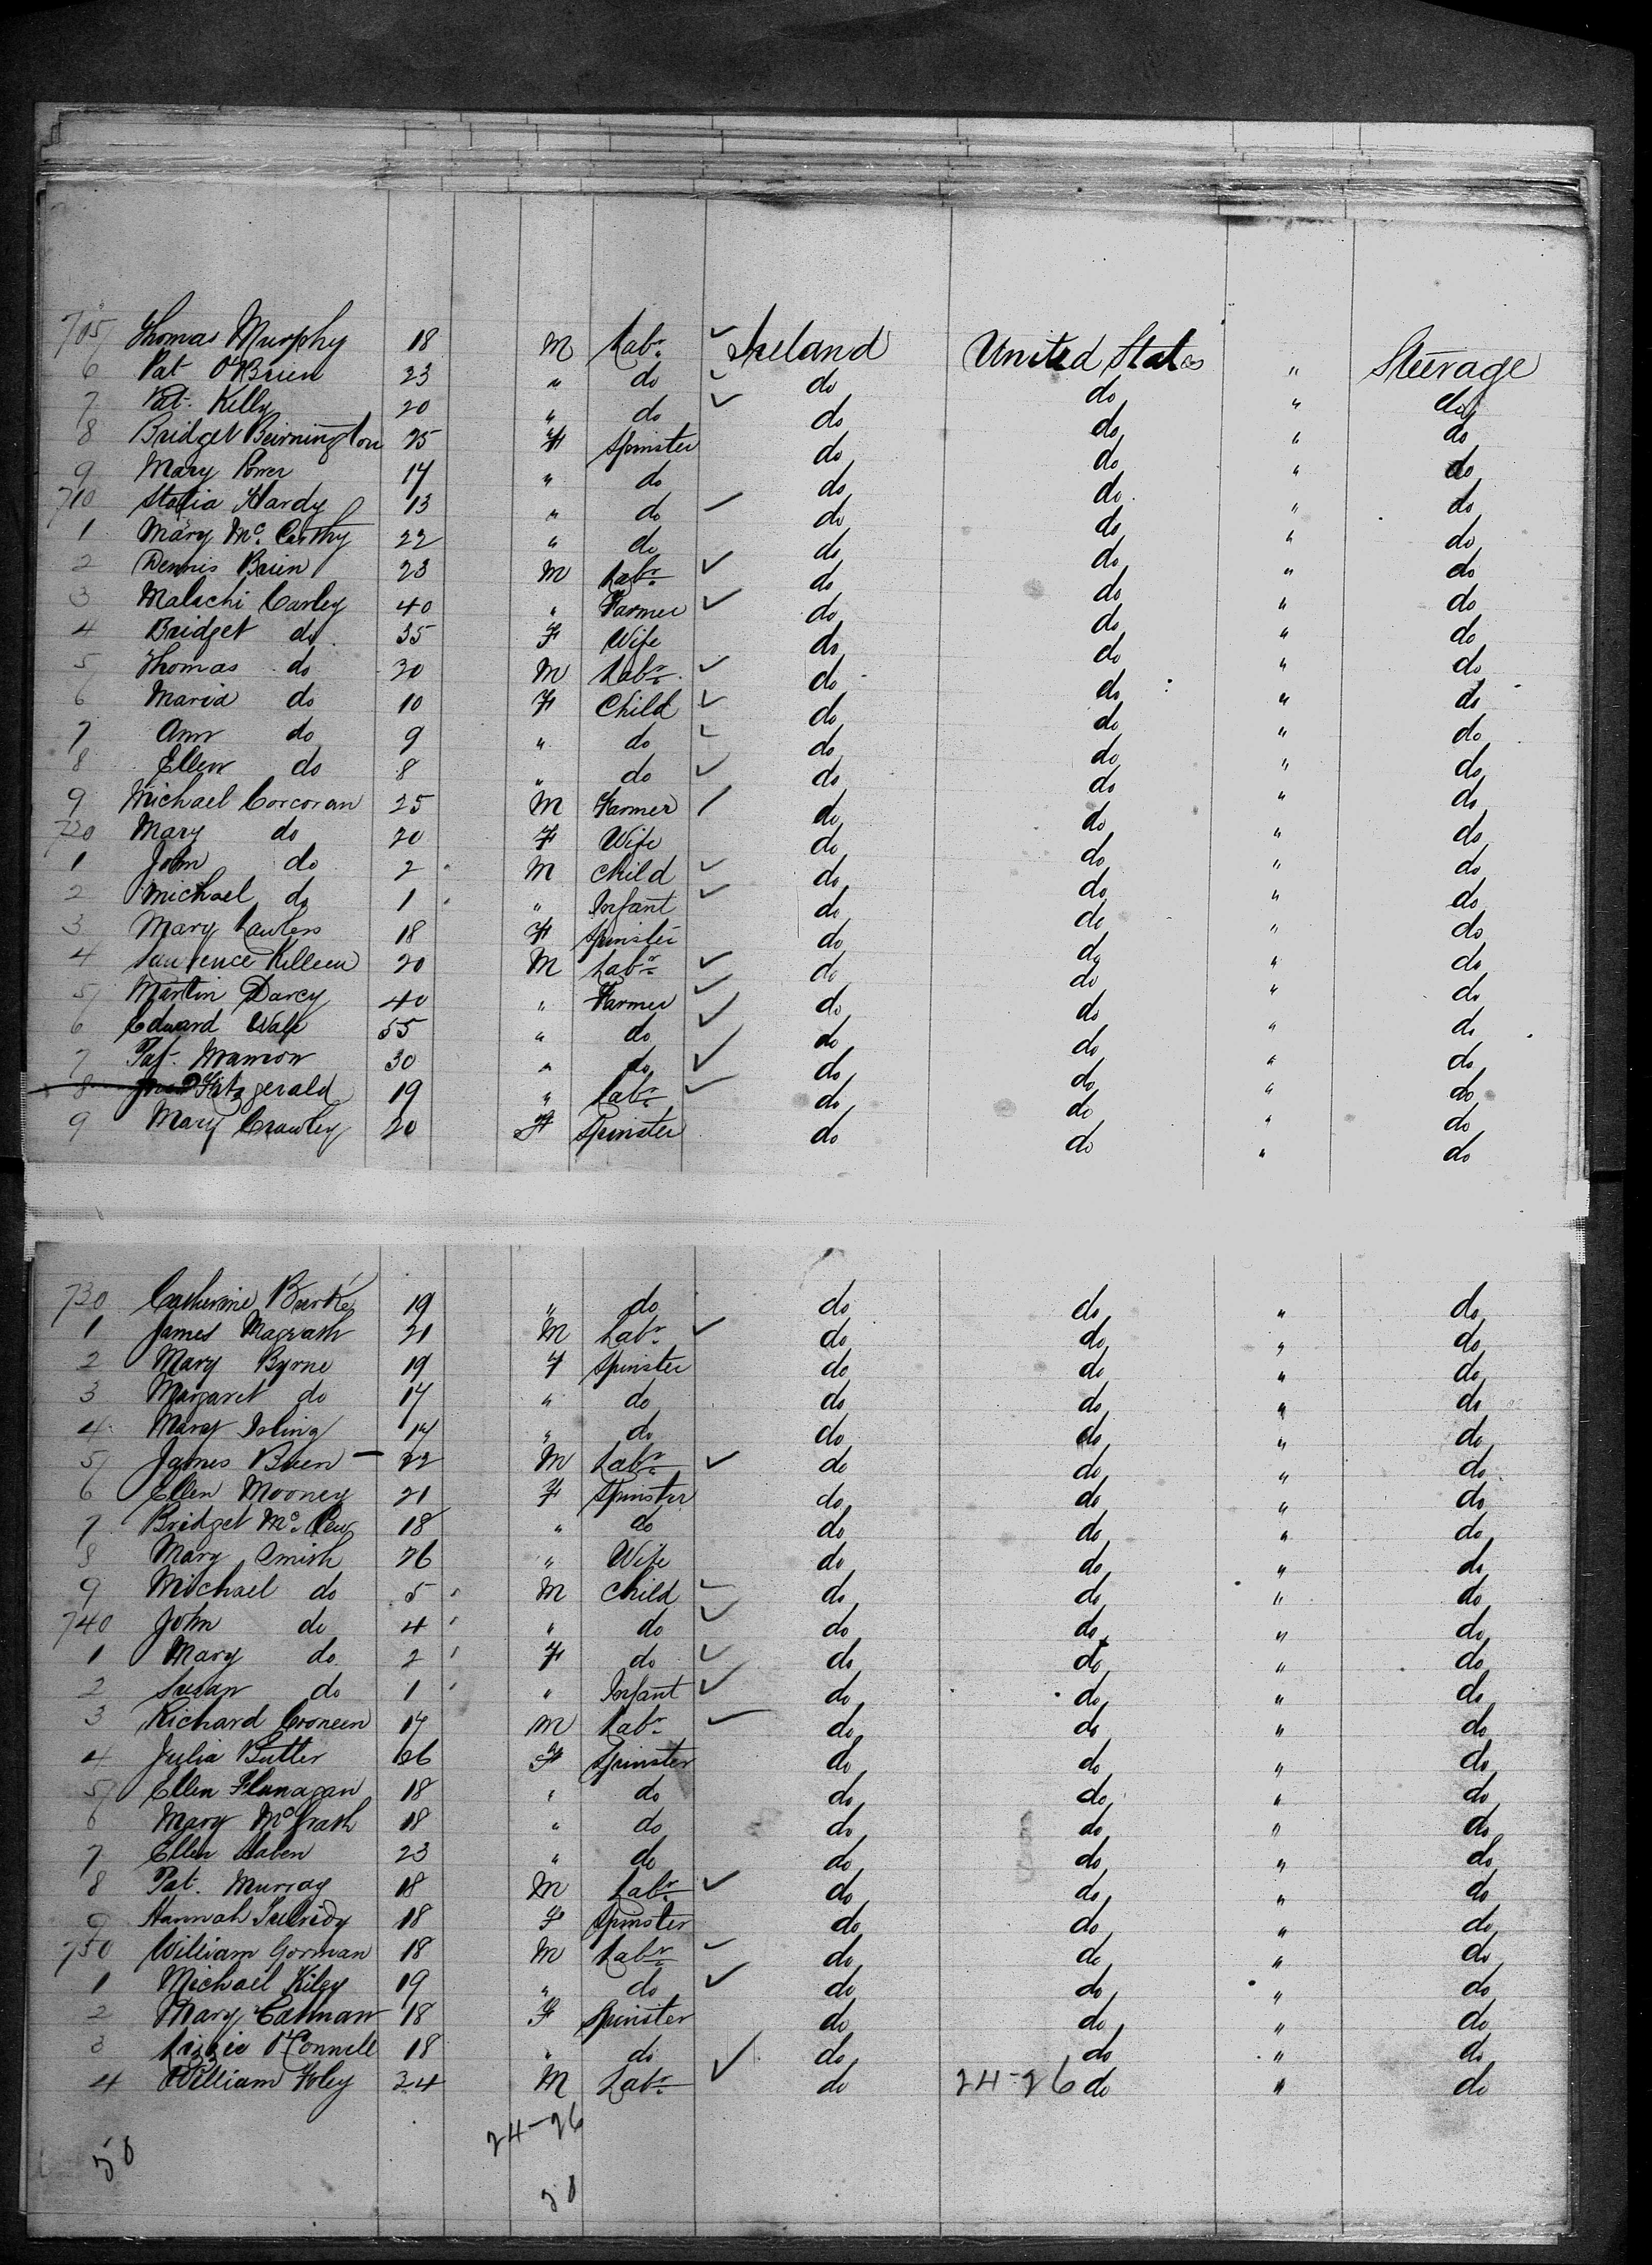 705 Thomas Murphy 18 M Labr. ✓ Ireland United States " Steerage
6 Pat O'Brien 23 " do ✓ do do " do
7 Pat. Kelly 20 " do ✓ do do " do
8 Bridget 25 F Spinster do do " do
9 Mary Power 17 " do do do " do
710 Statia Hardy 13 " do ✓ do do " do
1 Mary Mc. Carthy 22 " do do do " do
2 Dennis Brien 23 M Labr. ✓ do do " do
3 Malachi Carley 40 " Farmer ✓ do do " do
4 Bridget do 35 F Wife do do " do
5 Thomas do 30 M Labr. ✓ do do " do
6 Maria do 10 F Child ✓ do do " do
7 Ann do 9 " do ✓ do do " do
8 Ellen do 8 " do ✓ do do " do
9 Michael Corcoran 25 M Farmer / do do " do
720 Mary do 20 F Wife do do " do
1 John do 2 M Child ✓ do do " do
2 Michael do 1 " Infant ✓ do do " do
3 Mary Lawless 18 F Spinster do do " do
4 Lawrence Killeen 20 M Labr. ✓ do do " do
5 Martin Darcy 40 " Farmer ✓ do do " do
6 Edward 55 " do ✓ do do " do
7 Pat. Mannon 30 " do ✓ do do " do
8 Fitzgerald 19 " Labr. ✓ do do " do
9 Mary Crawley 20 F Spinster do do " do
730 Catherine Burke 19 " do do do " do
1 James Magrath 21 M Labr. ✓ do do " do
2 Mary Byrne 19 F Spinster do do " do
3 Margaret do 17 " do do do " do
4 Mary 17 " do do do " do
5 James Brien – 22 M Labr. ✓ do do " do
6 Ellen Mooney 21 F Spinster do do " do
7 Bridget Mc. 18 " do do do " do
8 Mary Smith 26 " Wife do do " do
9 Michael do 5 M Child ✓ do do " do
740 John do 4 " do ✓ do do " do
1 Mary do 2 F do ✓ do do " do
2 Susan do 1 " Infant ✓ do do " do
3 Richard Croneen 17 M Labr. ✓ do do " do
4 Julia Butler 26 F Spinster do do " do
5 Ellen Flanagan 18 " do do do " do
6 Mary McGrath 18 " do do do " do
7 Ellen 23 " do do do " do
8 Pat. Murray 18 M Labr. ✓ do do " do
9 Hannah 18 F Spinster do do " do
750 William Gorman 18 M Labr. ✓ do do " do
1 Michael Kiley 19 " do ✓ do do " do
2 Mary 18 F Spinster do do " do
3 Lizzie O'Connell 18 " do do do " do
4 William Foley 34 M Labr. ✓ do 24-26 do " do
24-26
50
50